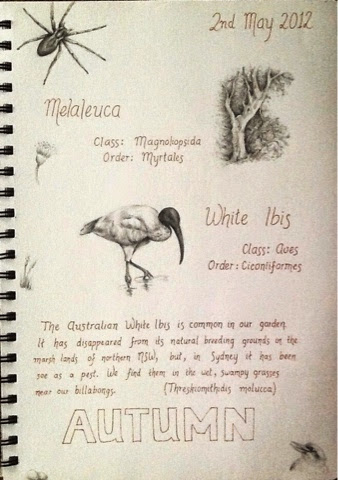 2nd May 2012
Melaleuca
Class: Magnoliopsida
Order: Myrtales
White Ibis
Class: Aves
Order: Ciconiiformes
The Australian White Ibis is common in our garden.
It has disappeared from its natural breeding grounds on the
marsh lands of northern NSW, but, in Sydney it has been
soe as a pest. We find them in the wet, swampy grasses
near our billabongs. (Threskiornithidis molucca)
AUTUMN